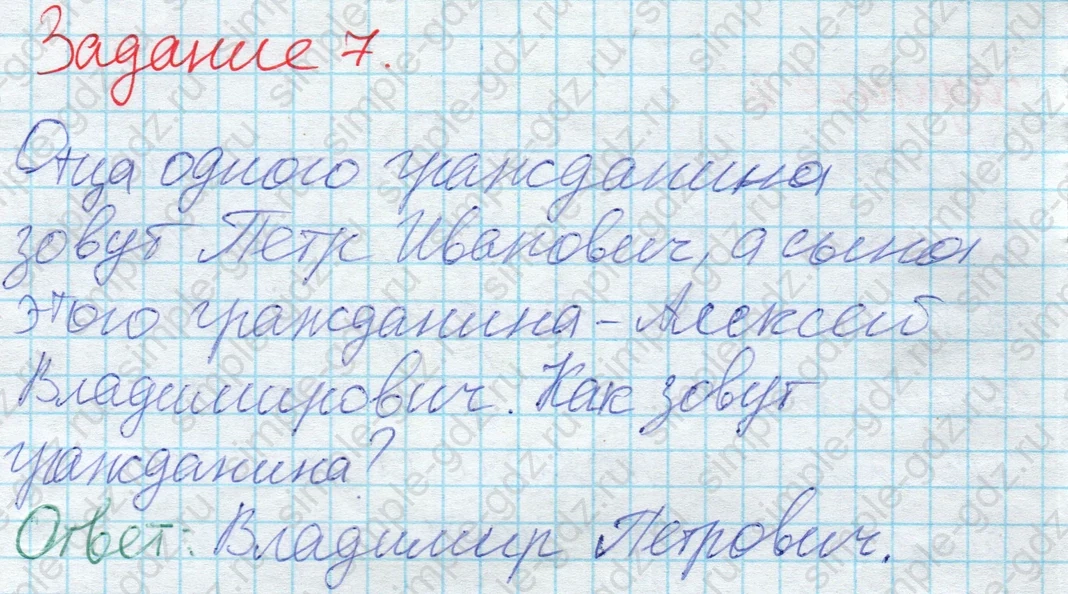 Задание 7.
Отца одного гражданина
зовут Петр Иванович, а сына
этого гражданина - Алексей
Владимирович. Как зовут
гражданина?
Ответ: Владимир Петрович.
simple-gdz.ru